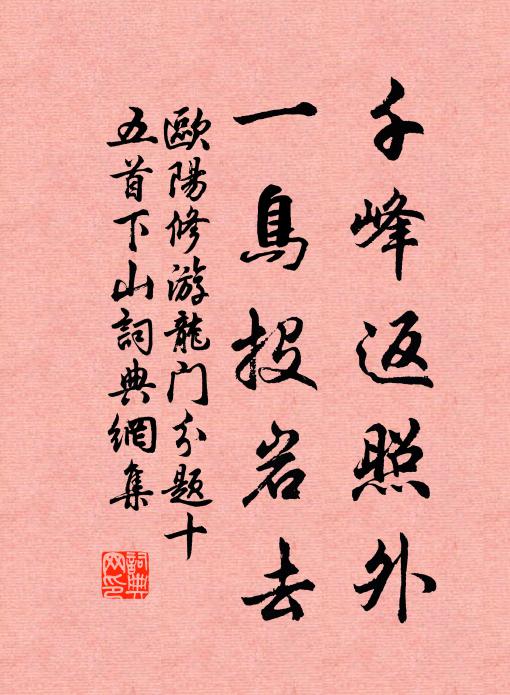 千峰返照外
一鳥投岩去
歐陽修游龍门分題十
五首下山詞典網集
詞典
网印